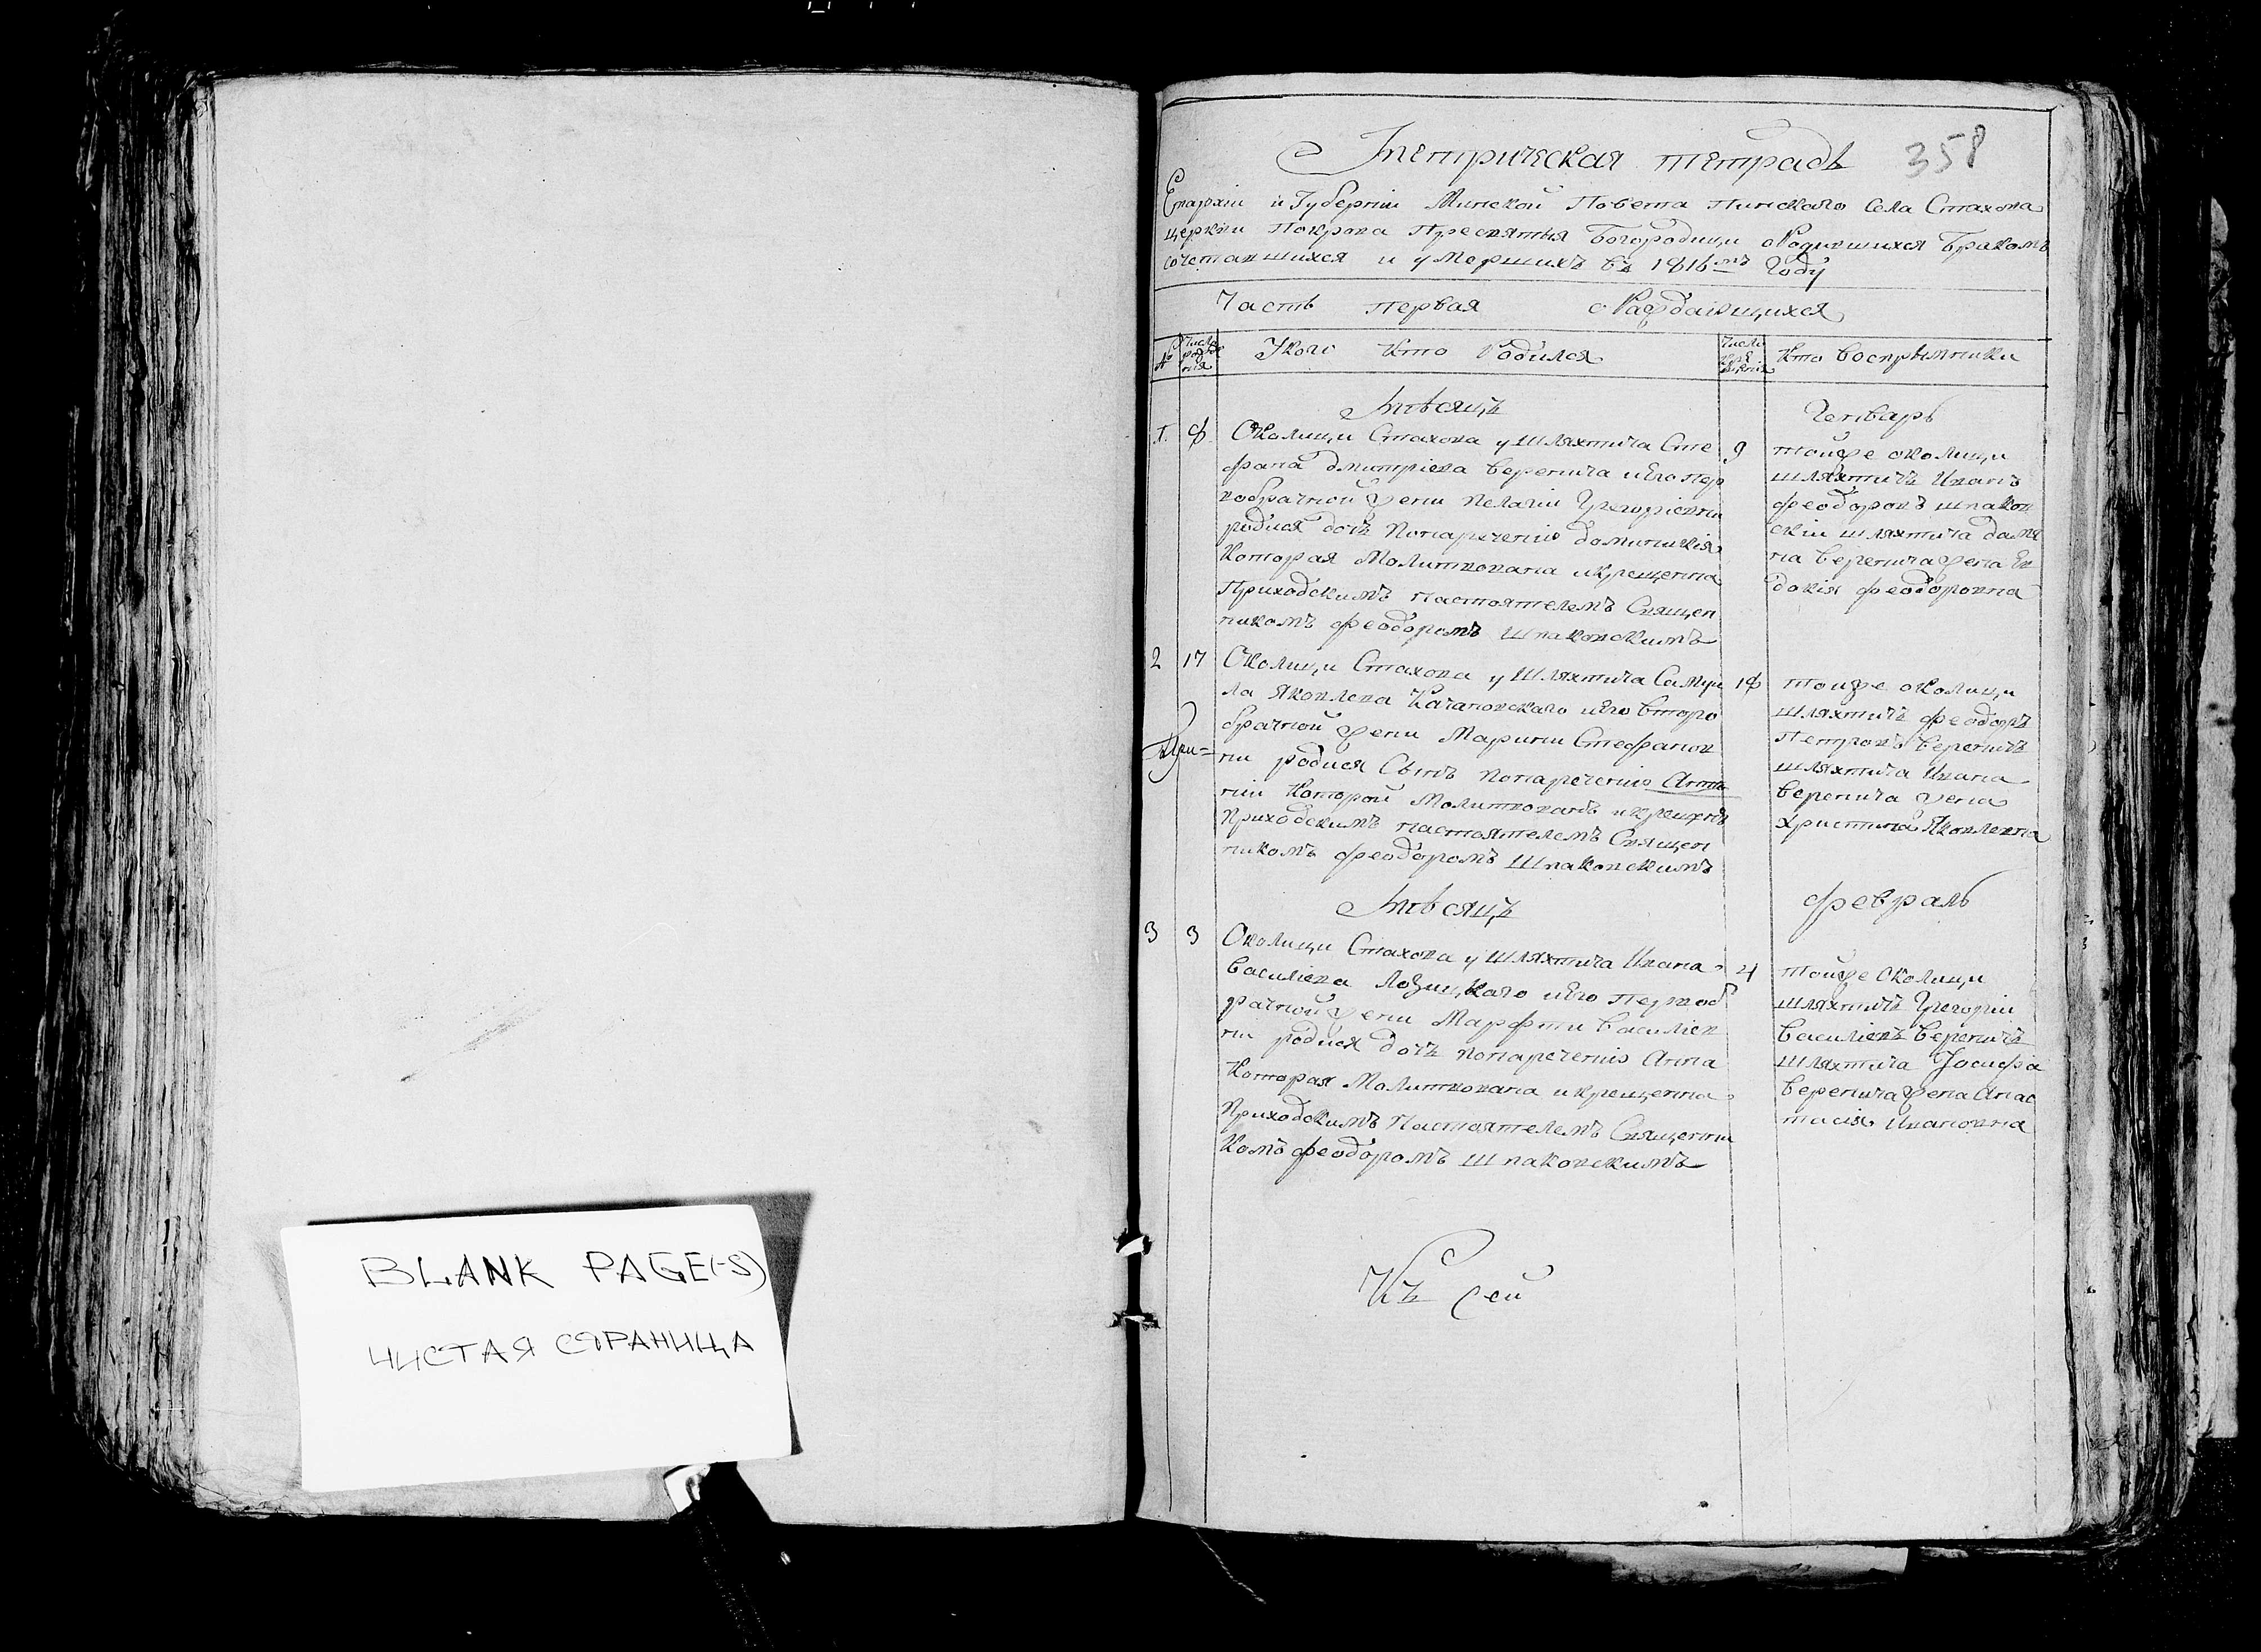 BLANK PAGE(-S)
ЧИСТАЯ СТРАНИЦА
Метрическая тетрадь 358
Епархіи и Губерніи Минской Повета Пинского Села Стахова
церкви Покрова Пресвятыя Богородици о Родившихся Бракомъ
сочетавшихся и умершихъ въ 1816мъ Году
Часть первая о Раждающихся
№
Число рожде нія
У кого кто Родился
Число кре щенія
Кто Воспріимники
Мѣсяцъ
Генварь
1. 8
Околици Стахова у шляхтича Сте
фана Дмитріева Веренича и Его пер
вобрачной жени Пелагіи Григоріевни
родися дочь Понареченію Доминикія
Которая Молитвована и крещенна
Приходскимъ настоятелемъ Священ
никомъ Феодоромъ Шпаковскимъ
9
тойже околици
шляхтичъ Иванъ
Феодоровъ Шпаков
скій шляхтича Дамя
на Веренича жена Ев
докія Феодоровна
2 17
Околици Стахова у Шляхтича Самуи
ла Яковлева Качановскаго и Его второ
брачной жени Марини Стефанов
ни родися Сынъ Понареченію Анто
ній Которой Молитвованъ и крещенъ
Приходскимъ настоятелемъ Священ
никомъ Феодоромъ Шпаковскимъ
18
тойже околици
шляхтичъ Феодоръ
Петровъ Вереничъ
шляхтича Ивана
Веренича жена
Христина Яковлевна
Мѣсяцъ
Февраль
3 3
Околици Стахова у Шляхтича Ивана
Василіева Лозицкаго и Его первоб
рачной жени Марфи Василіев
ни родися дочь понареченію Анна
Которая Молитвована и крещенна
Приходскимъ Настоятелемъ Священни
комъ Феодоромъ Шпаковскимъ
4
тойже Околици
шляхтичъ Григорій
Василіевъ Вереничъ
шляхтича Іосифа
Веренича жена Анас
тасія Ивановна
Къ сей